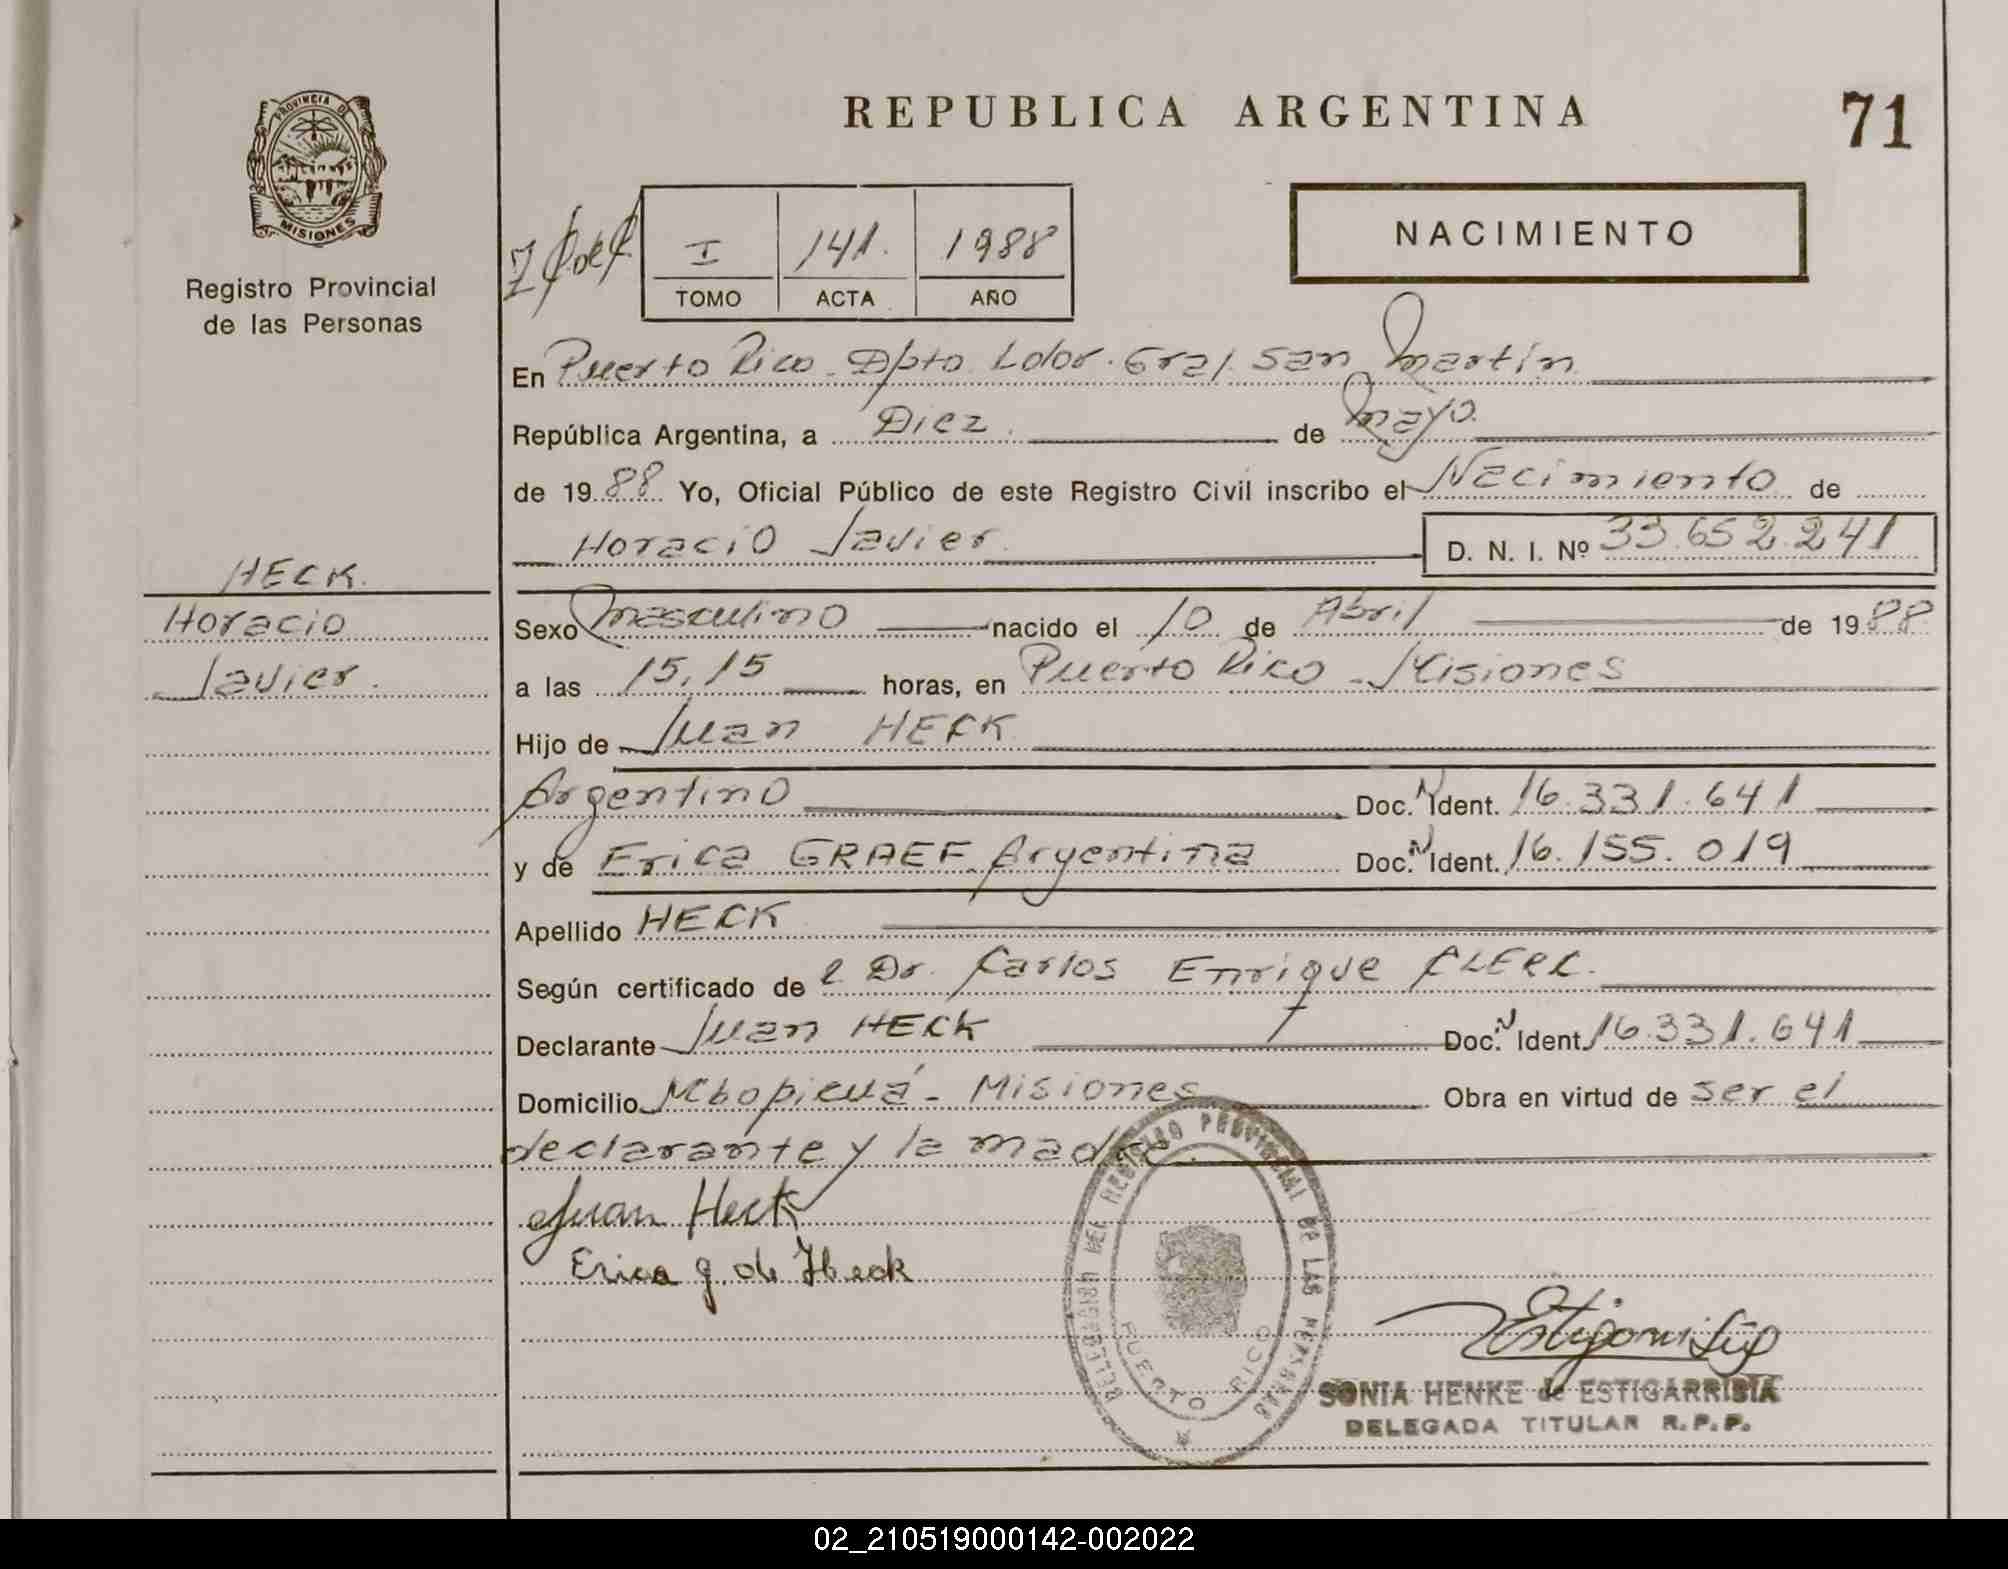 REPUBLICA ARGENTINA
71
PROVINCIA DE
MISIONES
Registro Provincial
de las Personas
I 141. 1988
TOMO ACTA AÑO
NACIMIENTO
En Puerto Rico - Dpto. Ldor. Gral San Martín
República Argentina, a Diez de Mayo.
de 1988 Yo, Oficial Público de este Registro Civil inscribo el Nacimiento de
Horacio Javier. D. N. I. Nº 33.652.241
HECK.
Horacio
Javier.
Sexo Masculino nacido el 10 de Abril de 1988
a las 15,15 horas, en Puerto Rico - Misiones
Hijo de Juan HECK
Argentino Doc. N Ident. 16.331.641
y de Erica GRAEF Argentina Doc. N Ident. 16.155.019
Apellido HECK
Según certificado de l Dr. Carlos Enrique CLERC.
Declarante Juan HECK Doc. N Ident. 16.331.641
Domicilio Mbopicuá - Misiones Obra en virtud de ser el
declarante y la madre.
Juan Heck
Erica g. de Heck
DELEGACION DEL REGISTRO PROVINCIAL DE LAS PERSONAS
PUERTO RICO
SONIA HENKE de ESTIGARRIBIA
DELEGADA TITULAR R.P.P.
02_210519000142-002022